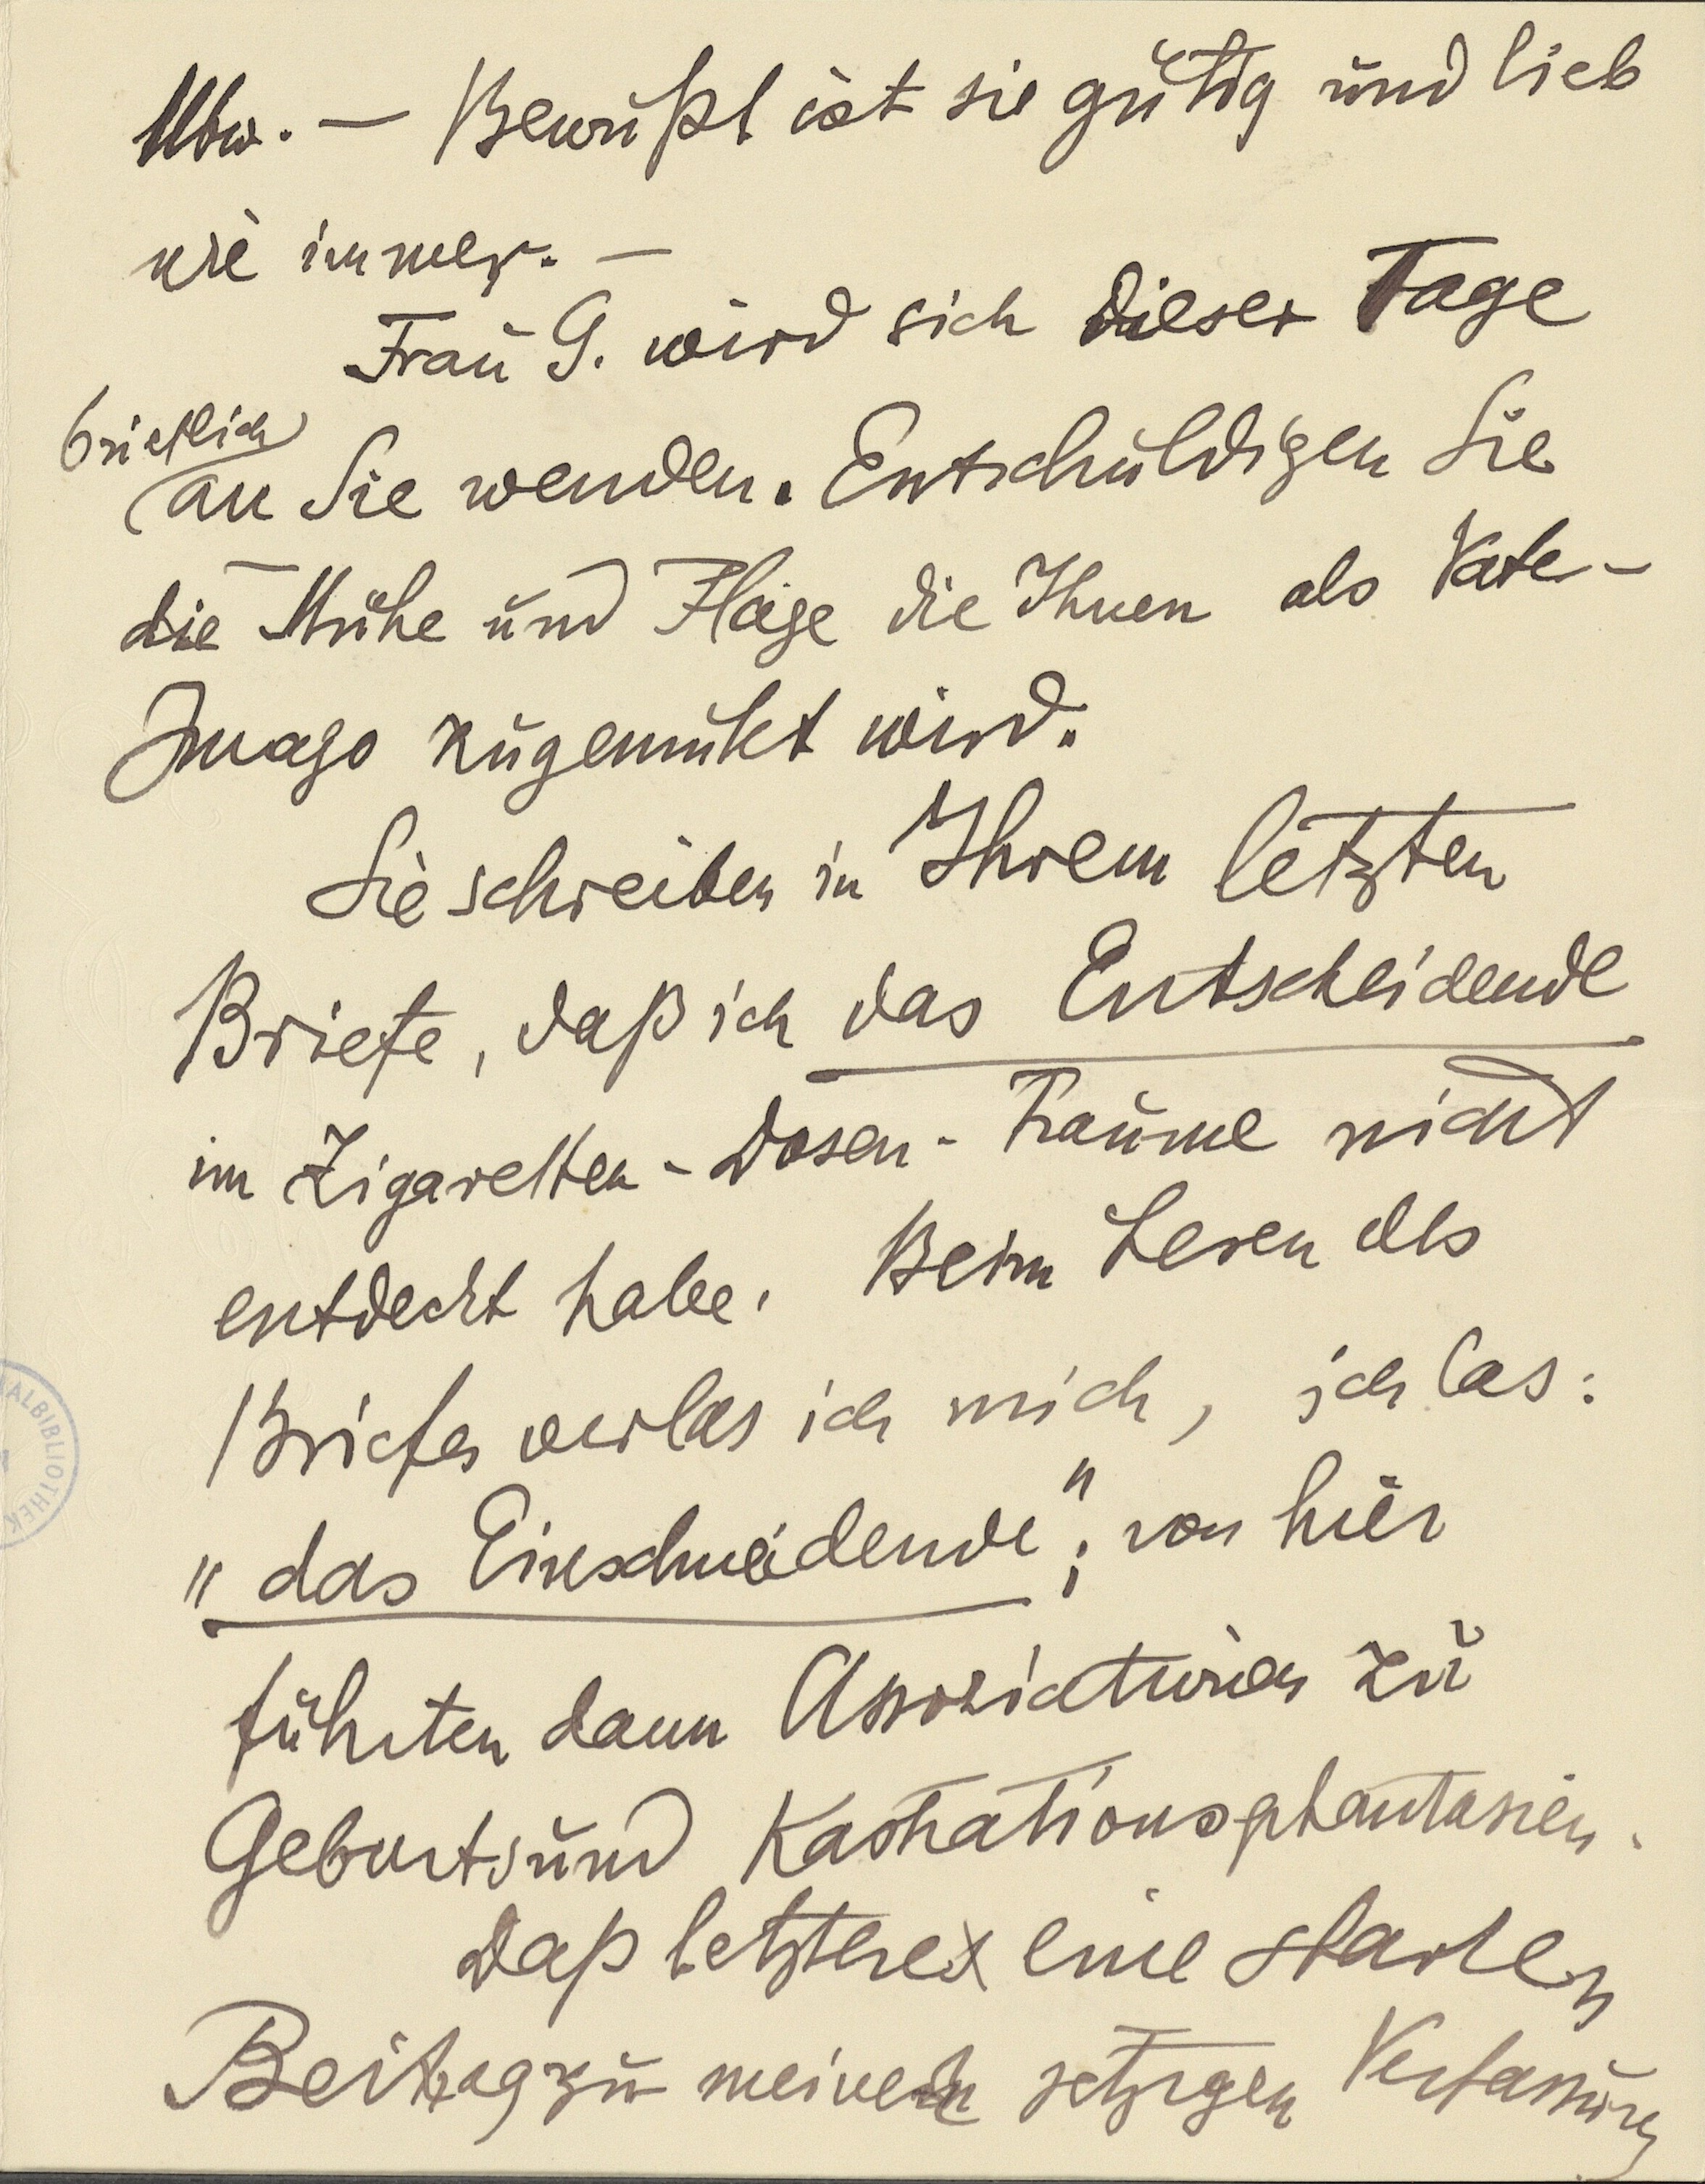 Ubw. — Bewußt ist sie gütig und lieb
wie immer. —
Frau G. wird sich dieser Tage
brieflich
an Sie wenden. Entschuldigen Sie
die Mühe und Plage die Ihnen als Vate-
Imago zugemutet wird.
Sie schreiben in Ihrem letzten
Briefe, daß ich das Entscheidende
im Zigaretten-Dosen-Traume nicht
entdeckt habe. Beim Lesen des
Briefes verlas ich mich, ich las:
„das Einschneidende"; von hier
führten dann Assoziationen zu
Geburts und Kastrationsphantasien.
Daß letztere eine starken
Beitrag zur meiner jetzigen Verfassung
ALBIBLIOTHEK